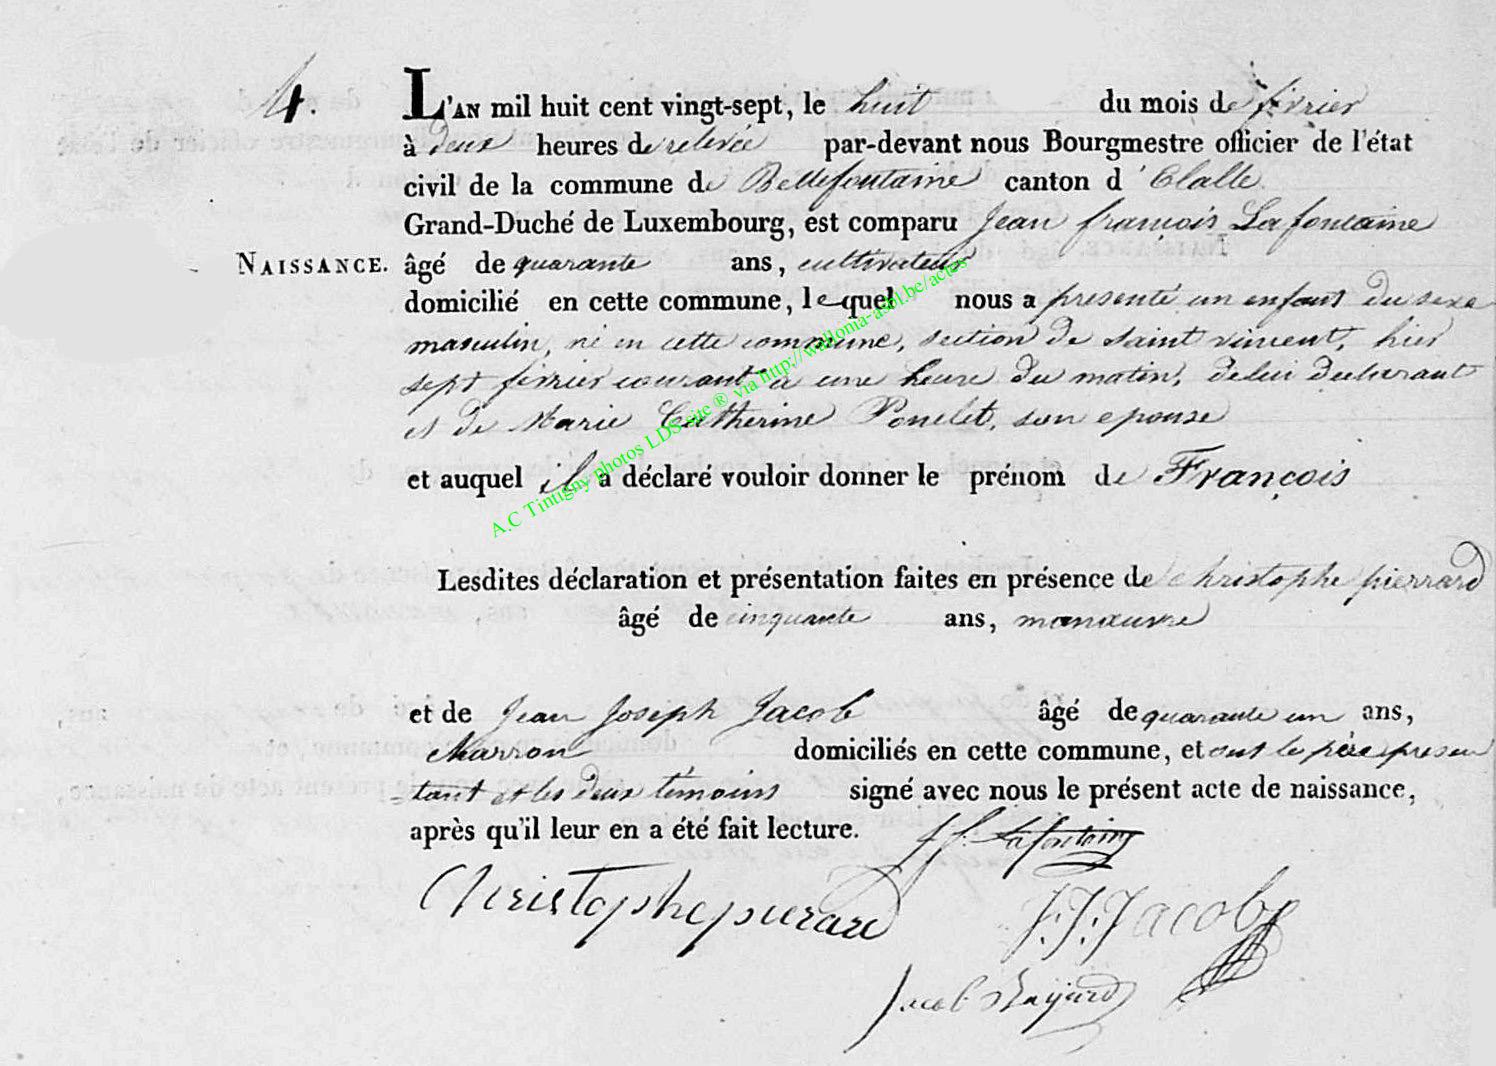 4.
L'AN mil huit cent vingt-sept, le huit du mois de février
à deux heures de relevée par-devant nous Bourgmestre officier de l'état
civil de la commune de Bellefontaine canton d'Etalle
Grand-Duché de Luxembourg, est comparu Jean francois Lafontaine
NAISSANCE. âgé de quarante ans, cultivateur
domicilié en cette commune, lequel nous a presenté un enfant du sexe
masculin, né en cette commune, section de saint vincent, hier
sept février courant à une heure du matin, de lui declarant
et de Marie Catherine Poncelet, son epouse
et auquel il a déclaré vouloir donner le prénom de François
A.C Tintigny photos LDS site ® via http://wallonia-asbl.be/actes
Lesdites déclaration et présentation faites en présence de christophe pierrard
âgé de cinquante ans, manœuvre
et de Jean Joseph Jacob âgé de quarante un ans,
domiciliés en cette commune, et ont le père presen
tant et les deux témoins signé avec nous le présent acte de naissance,
après qu'il leur en a été fait lecture. J f. Lafontaine
Christophe pierard J: J: Jacob
Jacob